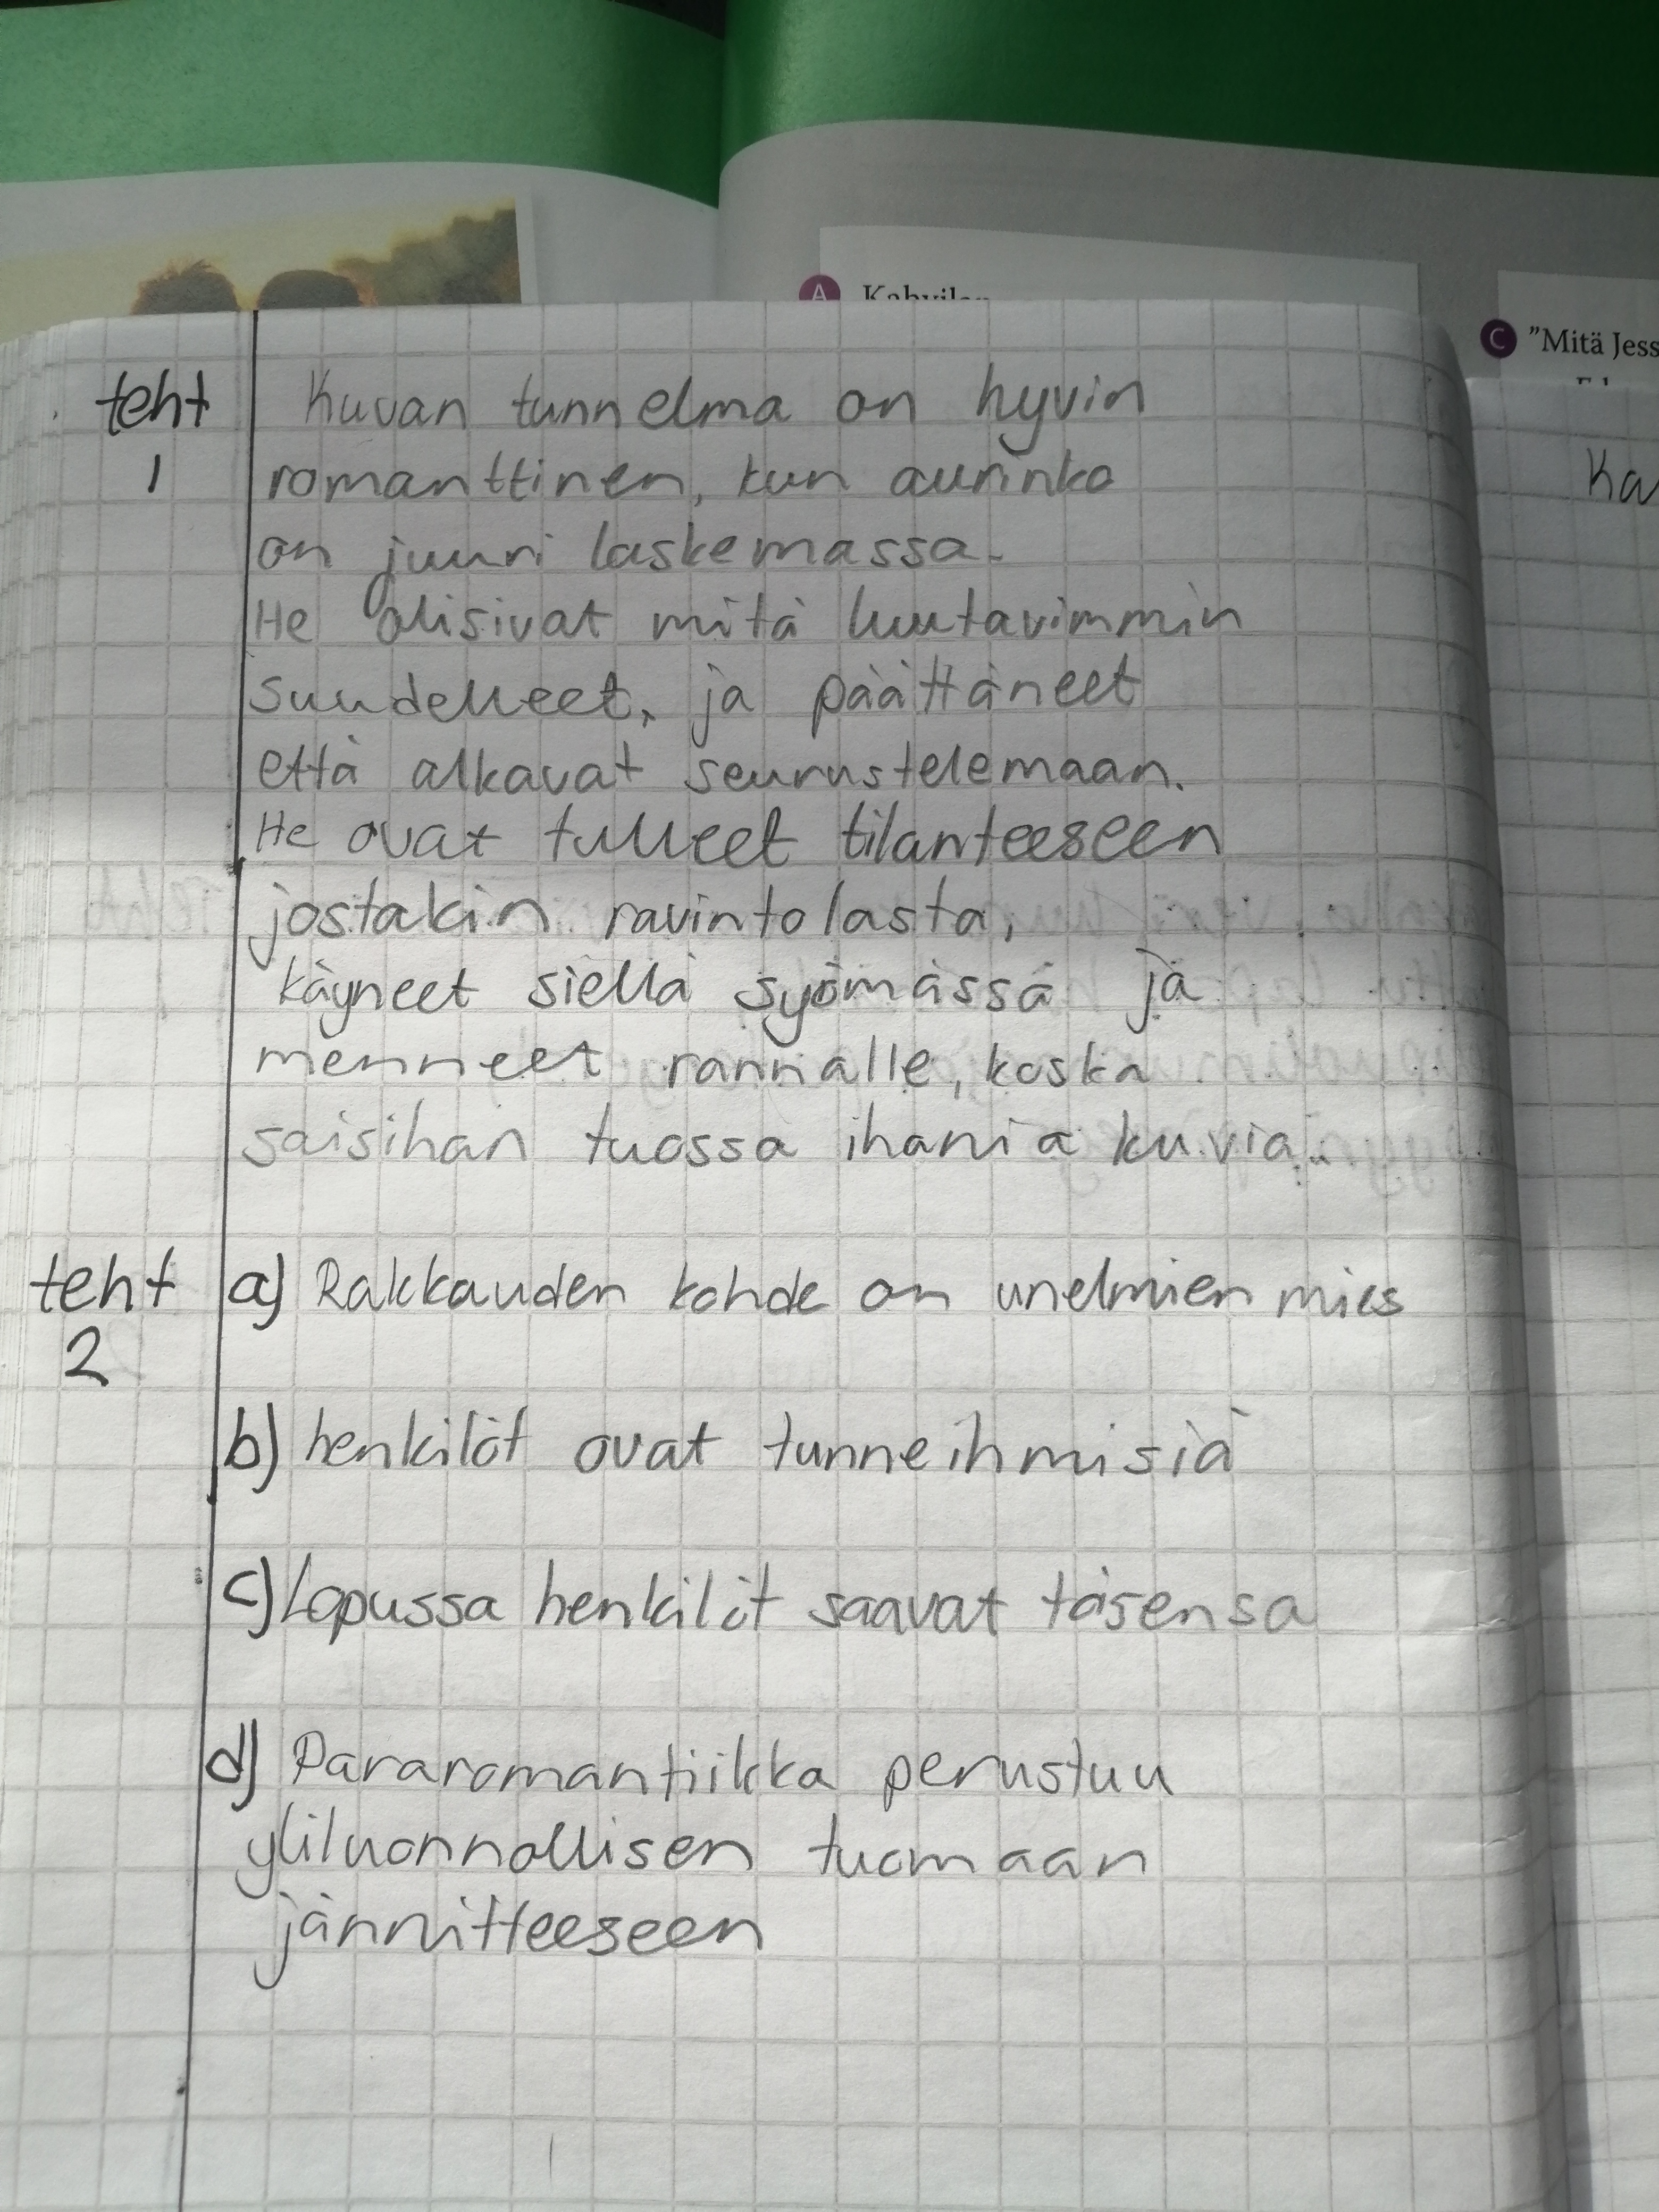 A
C "Mitä Jess
teht
1
Kuvan tunnelma on hyvin
romanttinen, kun aurinko
on juuri laskemassa.
He olisivat mitä luutavimmin
suudelleet, ja päättäneet
että alkavat seurustelemaan.
He ovat tulleet tilanteeseen
jostakin ravintolasta,
käyneet siellä syömässä ja
menneet rannalle, koska
saisihan tuossa ihania kuvia.
Ka
teht
2
a) Rakkauden kohde on unelmien mies
b) henkilöt ovat tunneihmisiä
c) Lopussa henkilöt saavat toisensa
d) Pararomantiikka perustuu
yliluonnollisen tuomaan
jännitteeseen